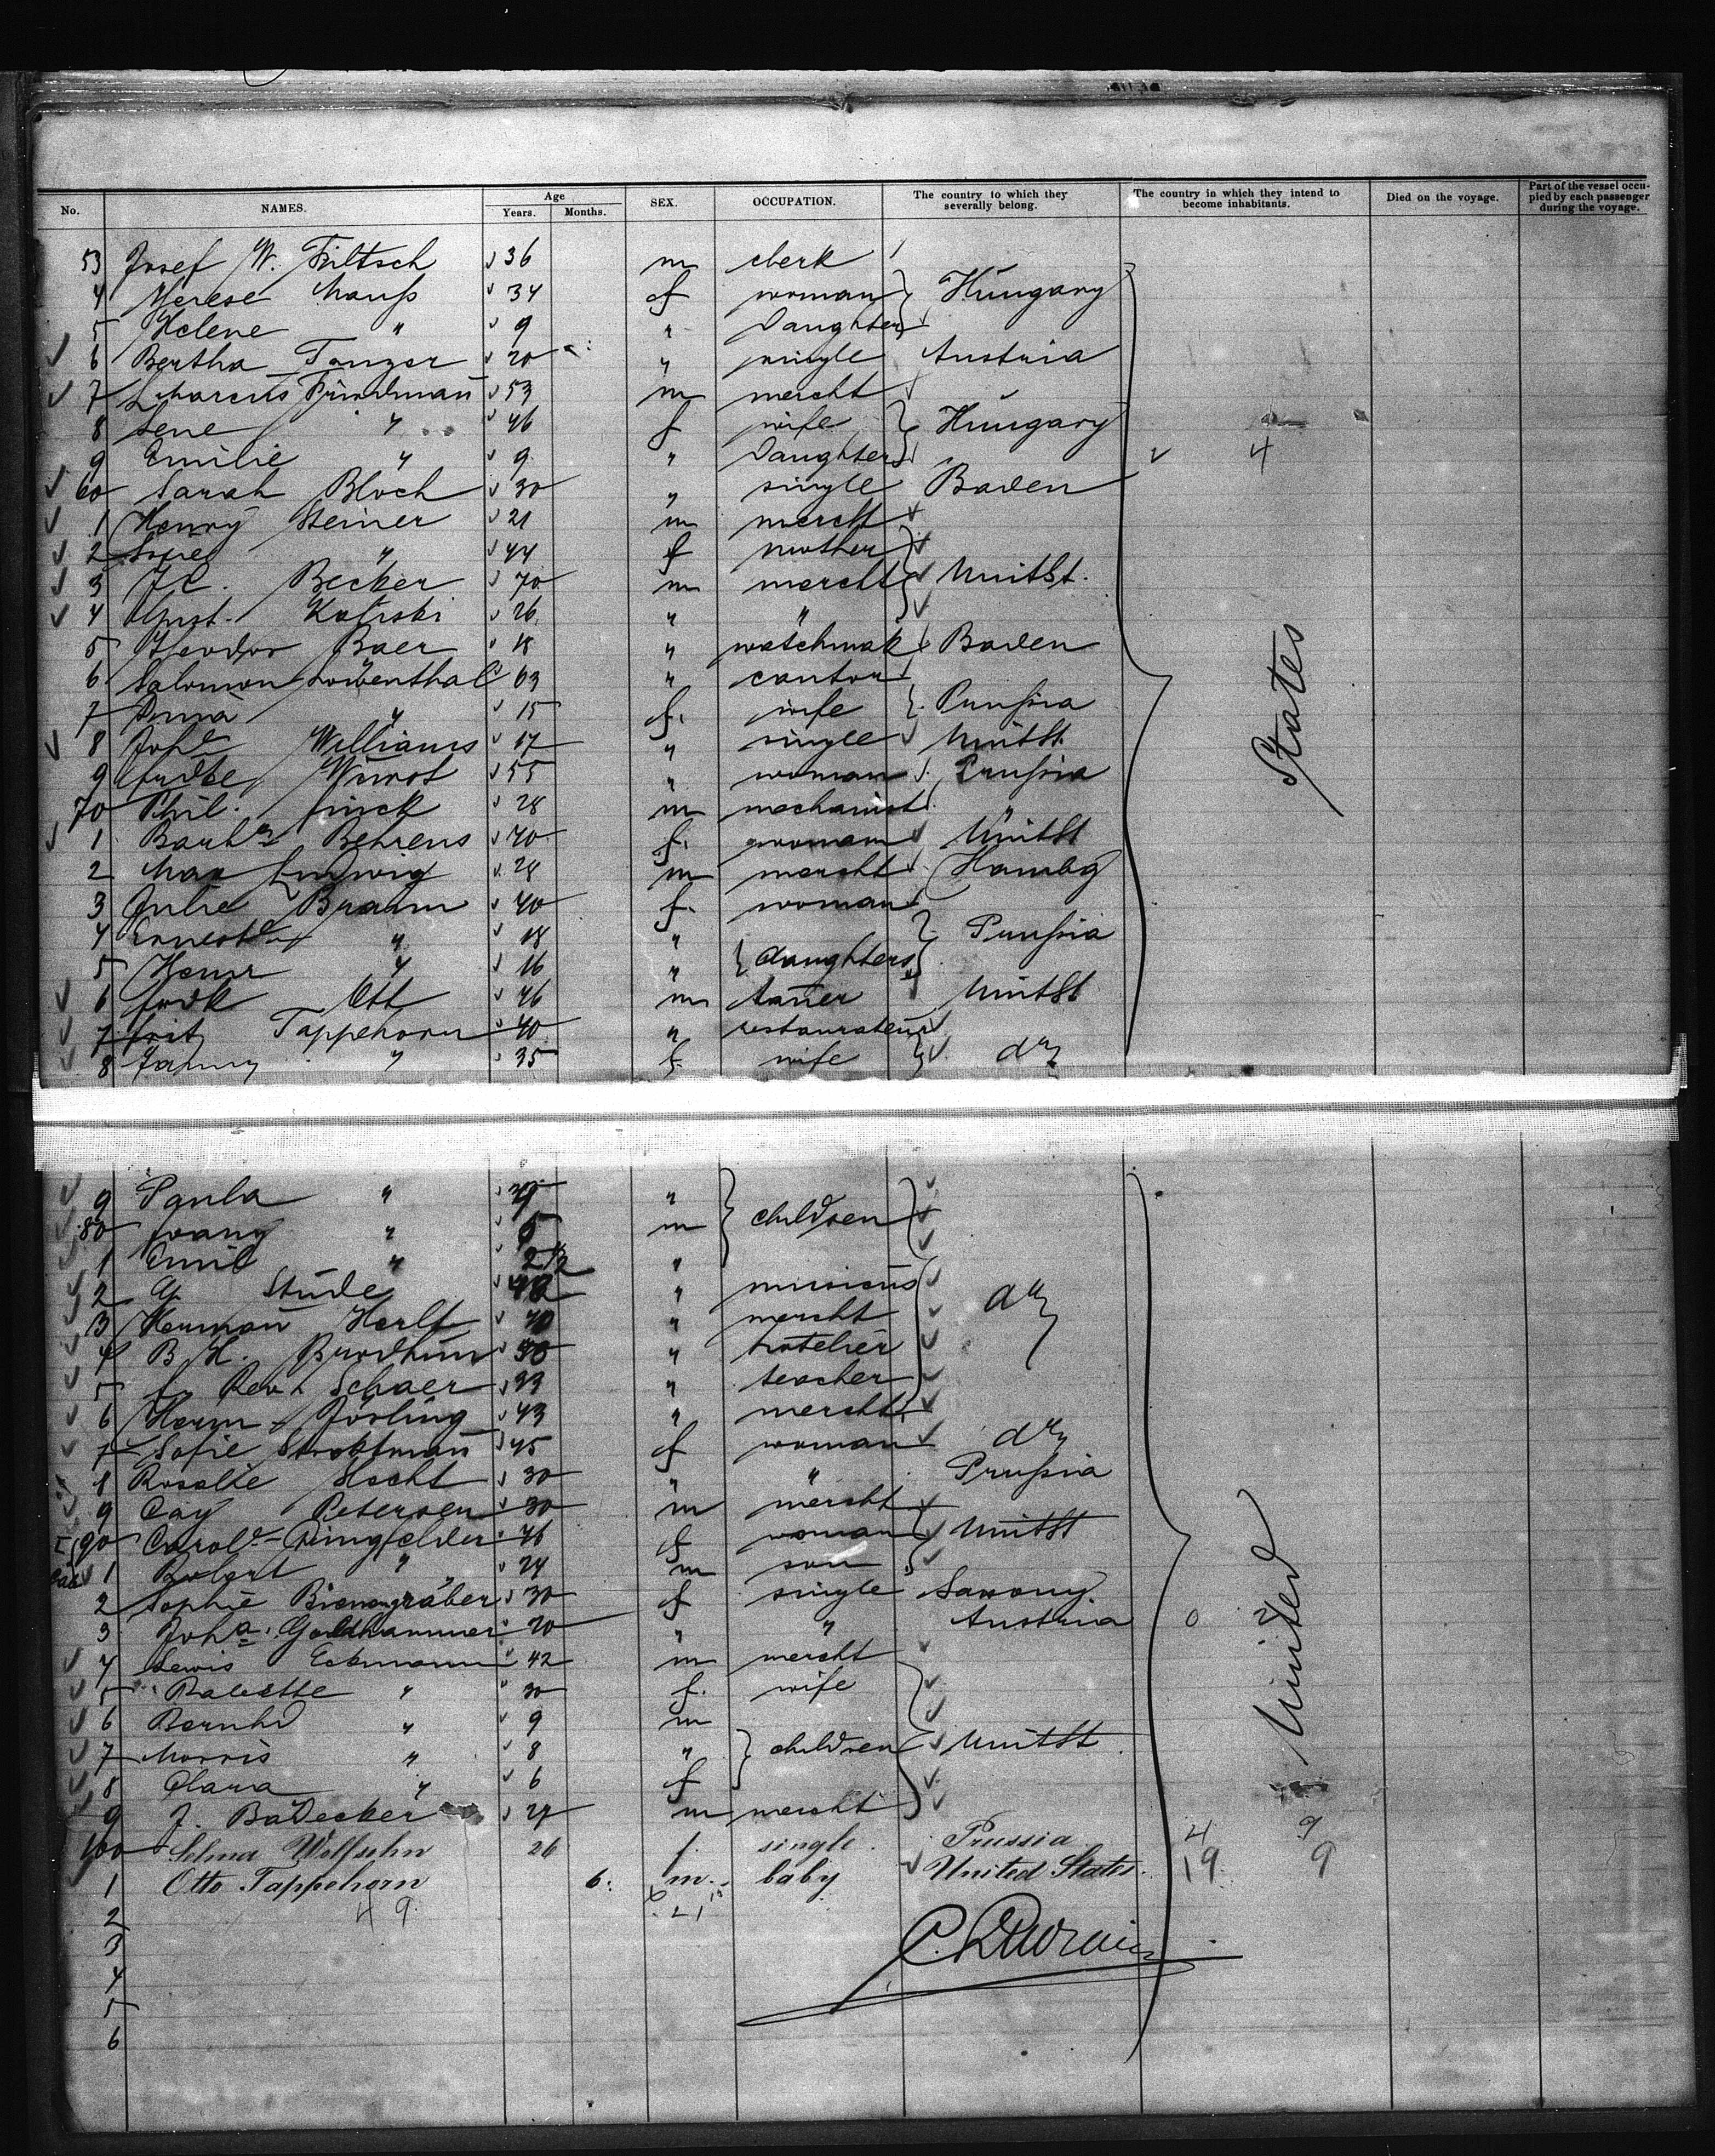 No. NAMES. Age Years. Months. SEX. OCCUPATION. The country to which they severally belong. The country in which they intend to become inhabitants. Died on the voyage. Part of the vessel occupied by each passenger during the voyage.
53 Josef W. Filtsch 36 m clerk
4 Therese Mauß 34 f woman Hungary
5 Helene " 9 " Daughter
6 Bertha Tanzer 20 " single Austria
7 Marcus 53 m mercht
8 Lene " 46 f wife Hungary
9 Emilie " 9 " Daughter 4
60 Sarah Bloch 30 " single Baden
1 Henry Steiner 21 m mercht
2 Sofie " 44 f mother
3 Becker 70 m mercht UnitSt.
4 Gust. 26 " "
5 Theodor Baer 18 " watchmak Baden
6 Salomon Löwenthal 63 " cantor
7 " 15 f. wife Prußia
8 Joh Williams 17 " single UnitSt
9 55 " woman Prußia
70 Phil. 28 m mechanist "
1 Barba Behrens 70 f. woman UnitSt
2 Max Ludwig 28 m mercht Hambg
3 Julie Braun 40 f. woman
4 Ernest " 18 " Prußia
5 " 16 " daughters
6 Ott 46 m taner UnitSt
7 Tappehorn 40 " restaurateur
8 Fanny " 35 f wife do
States
9 Paula " "
80 Franz " m children
1 Emil " 2½ "
2 G. Stude 42 " musicus do
3 Herman 40 " mercht
4 B. H. " hotelier
5 Schaer 33 " teacher
6 Herm. 43 " mercht
7 Sofie 45 f woman do
8 Rosalie Hecht 30 " " Prußia
9 Cay Petersen 30 m mercht
90 Carol Ringfelder 46 f woman UnitSt
1 Robert " 24 m son
2 Sophie Bienengräber 30 f single Saxony
3 Joha. Goldhammer 20 " " Austria 0 2
4 Lewis Eckmann 42 m mercht
5 Babette " 30 f. wife
6 Bernhd " 9 m
7 Morris " 8 " children UnitSt
8 Clara " 6 f
9 J. Bädecker 27 m mercht
100 Selma Wolfsohn 26 f. single Prussia 4 9
1 Otto Tappehorn 6. m. baby United States 19 9
United
2 49 21
3
4
5
6